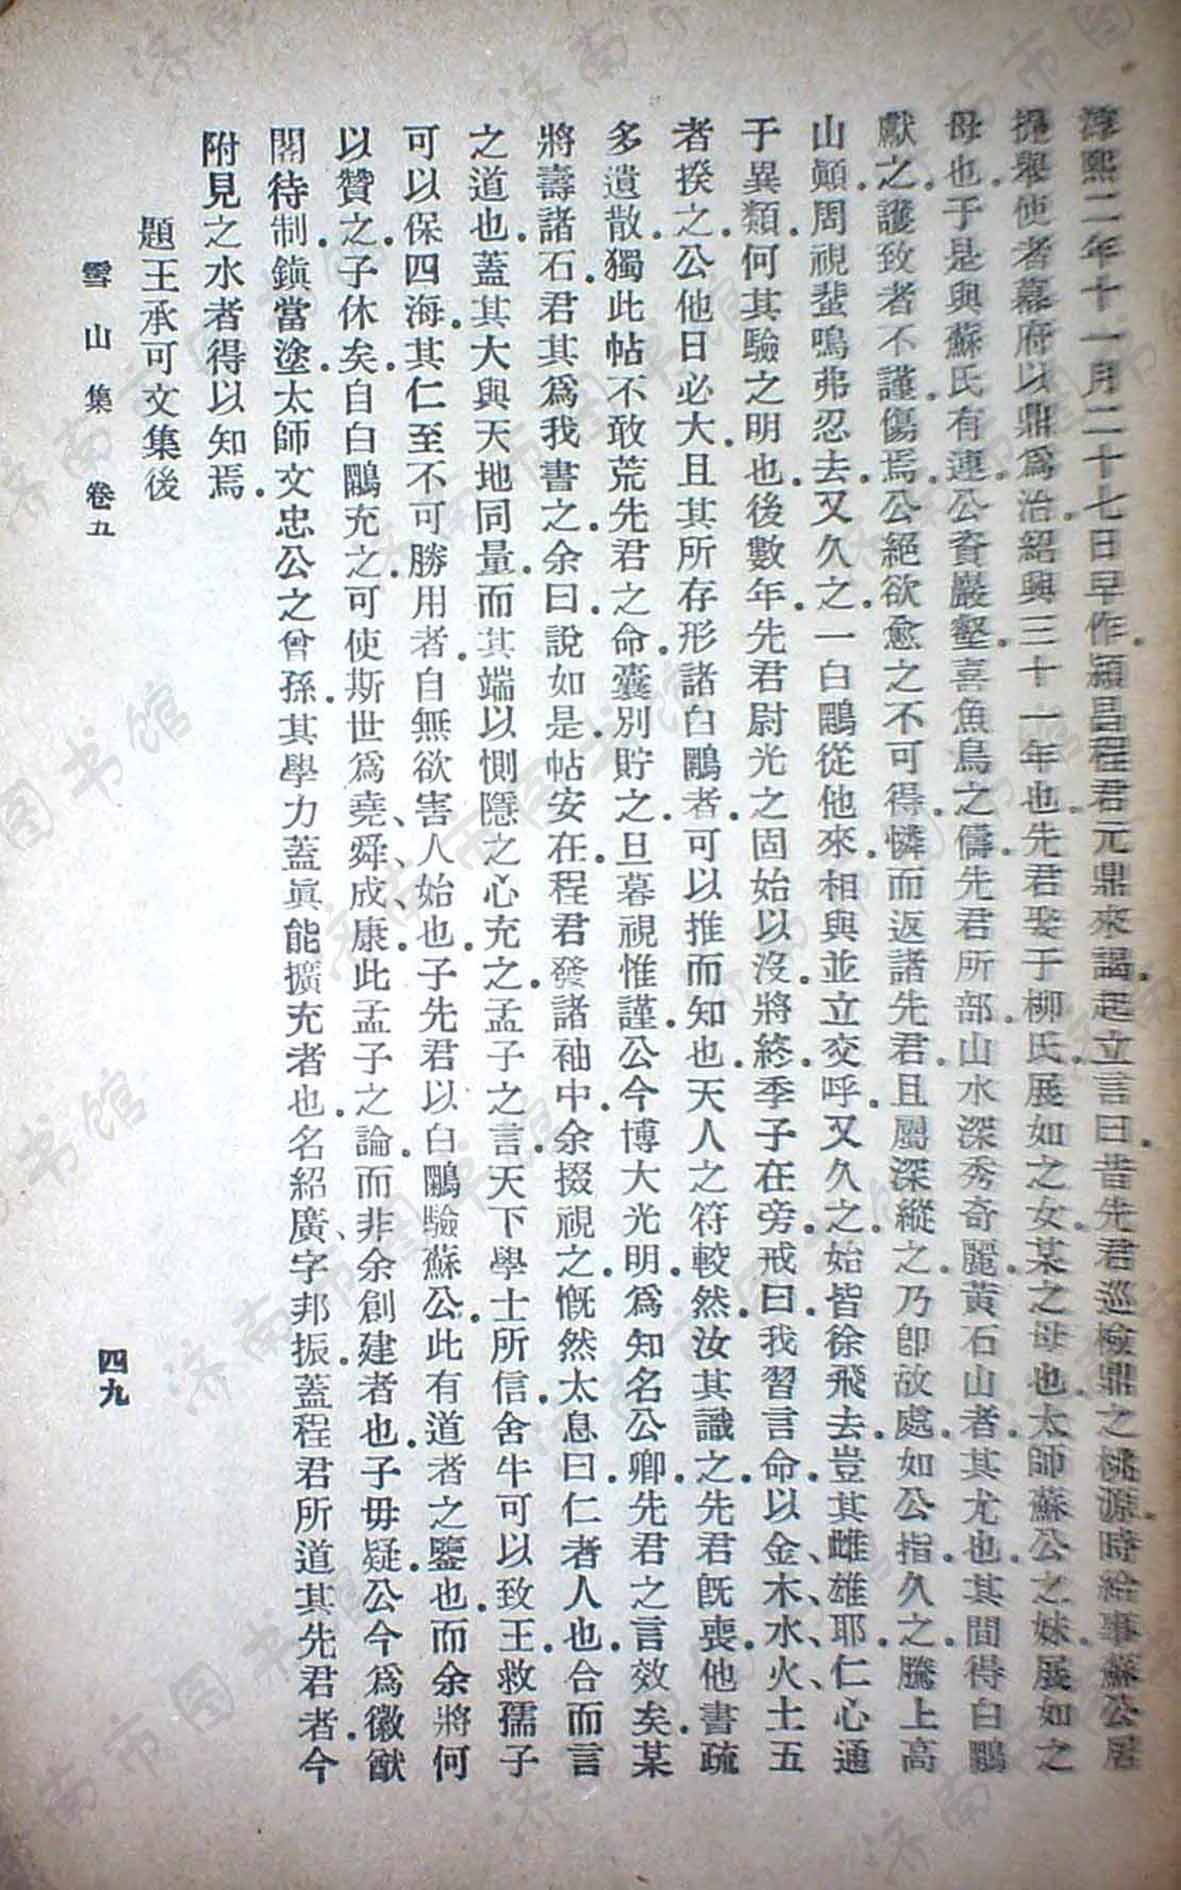 淳熙二年十一月二十七日早作。潁昌程君元鼎來謁。起立言曰。昔先君巡檢鼎之桃源。時給事蘇公居
提舉使者幕府以鼎爲治。紹興三十一年也。先君娶于柳氏。展如之女。某之母也。太師蘇公之妹。展如之
母也。于是與蘇氏有連。公資嚴壑。喜魚鳥之儔。先君所部。山水深秀奇麗。黃石山者。其尤也。其間得白鷴
獻之。護致者不謹。傷焉。公絕欲愈之不可得。憐而返諸先君。且屬深縱之。乃卽故處。如公指。久之。騰上高
山顚。周視蜚鳴弗忍去。又久之。一白鷴從他來。相與並立交呼。又久之。始皆徐飛去。豈其雌雄耶。仁心通
于異類。何其驗之明也。後數年。先君尉光之固始以沒。將終。季子在旁。戒曰。我習言命。以金、木、水、火、土五
者揆之。公他日必大。且其所存形諸白鷴者。可以推而知也。天人之符較然。汝其識之。先君旣喪。他書疏
多遺散。獨此帖不敢荒先君之命。囊別貯之。旦暮視惟謹。公今博大光明。爲知名公卿。先君之言效矣。某
將壽諸石。君其爲我書之。余曰。說如是。帖安在。程君發諸袖中。余掇視之。慨然太息曰。仁者人也。合而言
之道也。蓋其大與天地同量。而其端以惻隱之心充之。孟子之言。天下學士所信。舍牛可以致王。救孺子
可以保四海。其仁至不可勝用者。自無欲害人始也。子先君以白鷴驗蘇公。此有道者之鑒也。而余將何
以贊之。子休矣。自白鷴充之。可使斯世爲堯、舜、成、康。此孟子之論。而非余創建者也。子毋疑。公今爲徽猷
閣待制。鎭當塗。太師文忠公之曾孫。其學力蓋眞能擴充者也。名紹廣、字邦振。蓋程君所道其先君者。今
附見之。水者得以知焉。
題王承可文集後
雪山集 卷五 四九